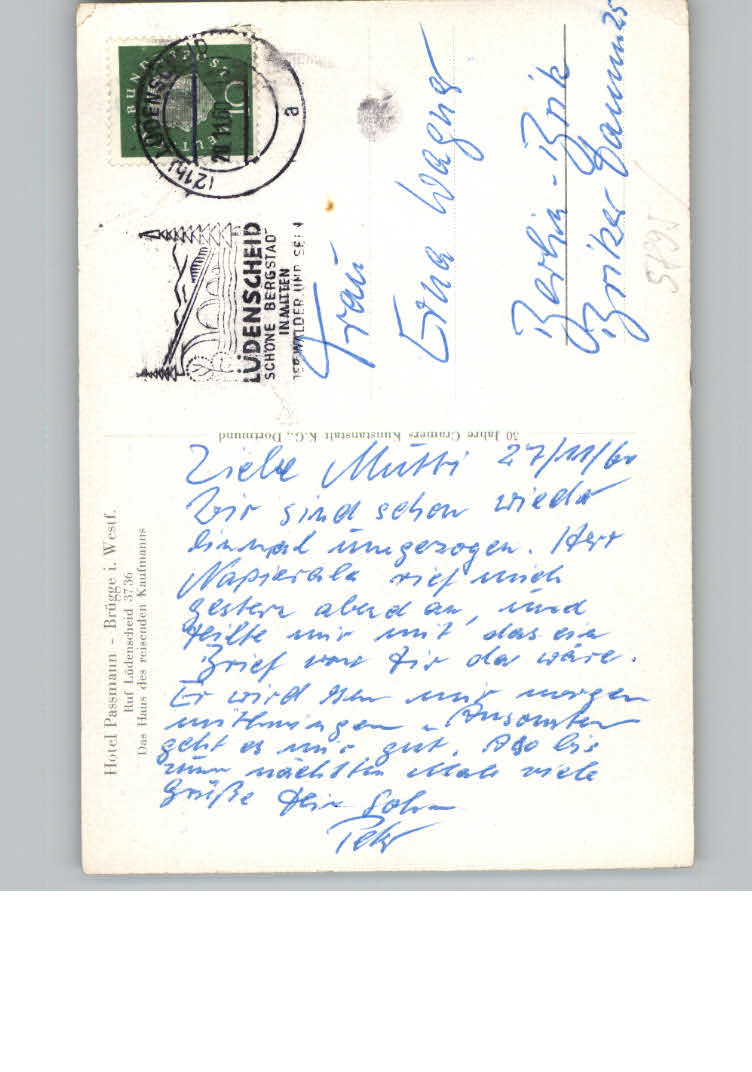 DEUTSCHE BUNDESPOST
10
(21b) LÜDENSCHEID
a
LÜDENSCHEID
SCHÖNE BERGSTADT
INMITTEN
DER WÄLDER UND SEEN
Frau
Erna Wagner
Berlin-Brik
Briker Damm 25
5895
50 Jahre Cramers Kunstanstalt K.G., Dortmund
Hotel Passmann - Brügge i. Westf.
Ruf Lüdenscheid 3736
Das Haus des reisenden Kaufmanns
Liebe Mutti 27/11/60
Wir sind schon wieder
einmal umgezogen. Herr
Napierala rief mich
gestern abend an, und
teilte mir mit, das ein
Brief von Dir da wäre.
Er wird ihn mir morgen
mitbringen. Ansonsten
geht es mir gut. Also bis
zum nächsten Male viele
Grüße Dein Sohn
Peter